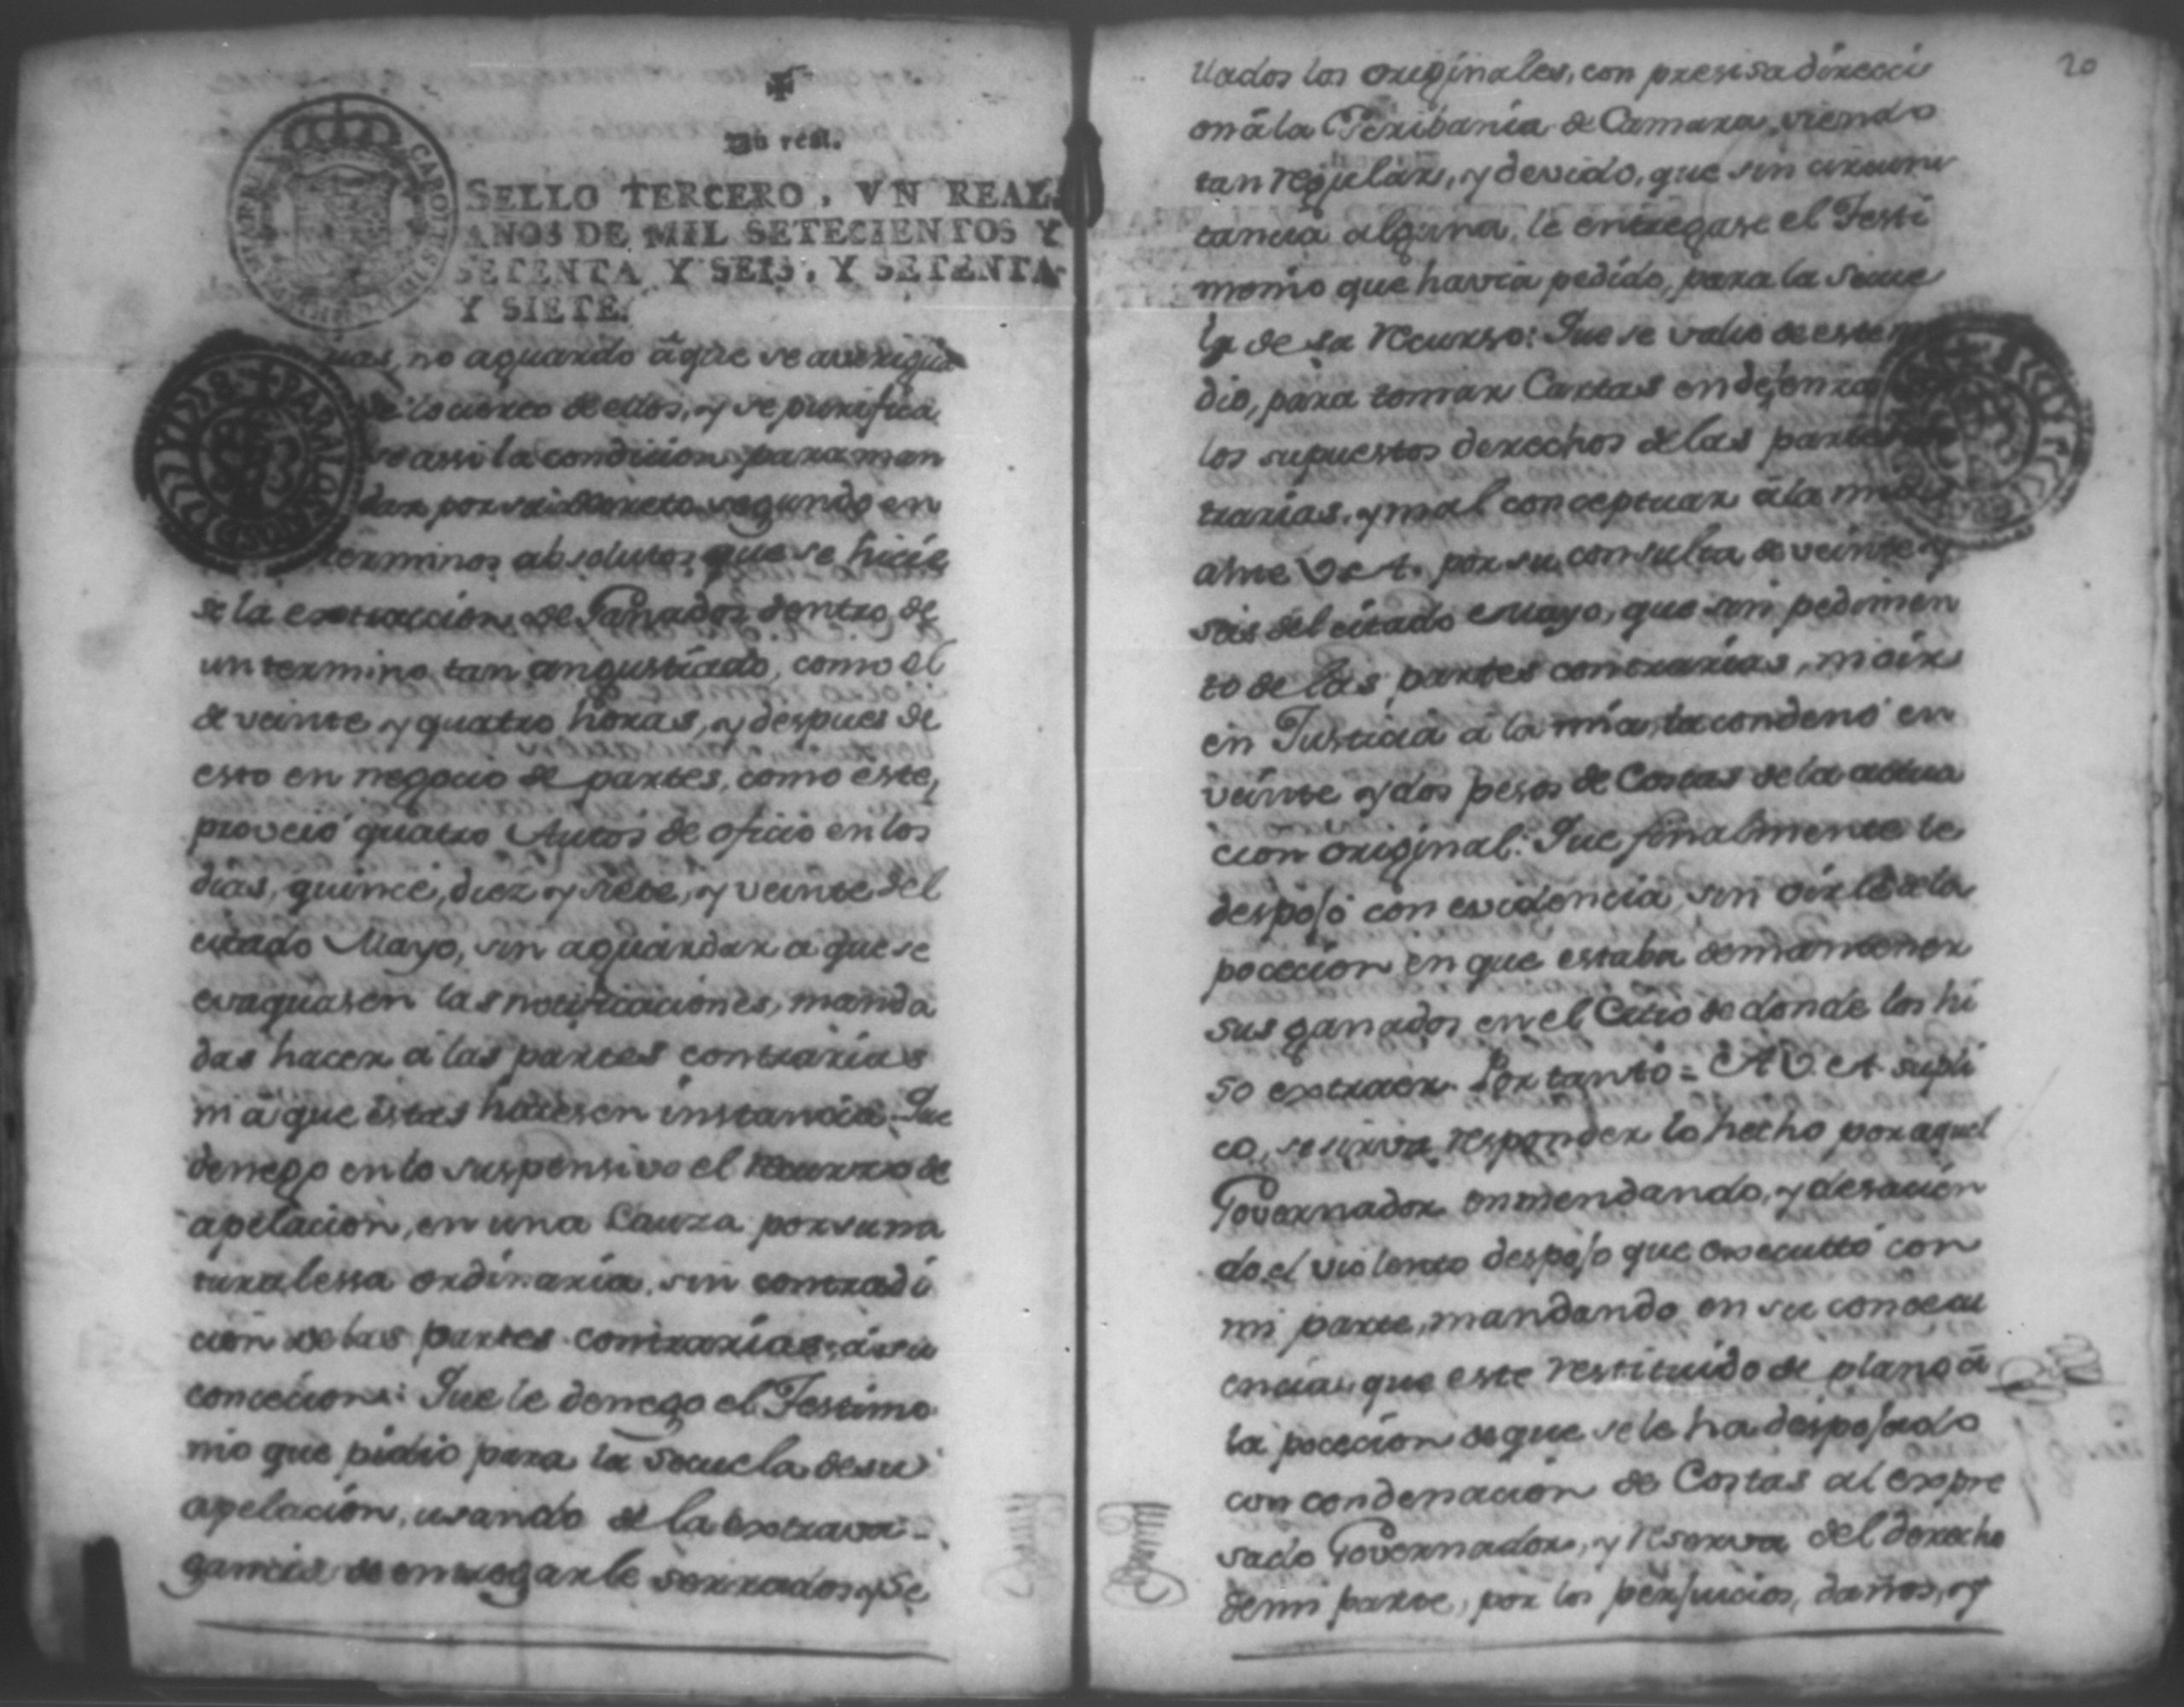 Un real.
SELLO TERCERO, VN REAL
AÑOS DE MIL SETECIENTOS Y
SETENTA Y SEIS, Y SETENTA
Y SIETE.
no aguardo á que se averigua
lo cierto de ellos, y se purifica
assi la condicion para man
dar por su Decreto segundo en
terminos absolutos que se hicie
se la extraccion de Ganados dentro de
un termino tan angustiado, como el
de veinte y quatro horas, y despues de
esto en negocio de partes, como este,
proveió quatro Autos de oficio en los
dias, quince, diez y siete, y veinte del
citado Mayo, sin aguardar a que se
evaquasen las notificaciones, manda
das hacer á las partes contrarias
ni á que estas hiciesen instancia. Que
denego en lo suspensivo el recurso de
apelacion, en una Cauza por su na
turalessa ordinaria, sin contradi
cion de las partes contrarias, á su
concecion: Que le denego el Testimo
nio que pidio para la secuela de su
apelacion, usando de la extrava-
gancia de entregarle serrados y se
20
llados los originales, con presisa direcci
on á la Escribania de Camara, siendo
tan regular, y devido, que sin circuns
tancia alguna, le entregase el Testi
monio que havia pedido, para la secue
la de su recurso: Que se valio de este
dio, para tomar Cartas en defenza
los supuestos derechos de las partes
trarias, y mal conceptuar á la mia
ante V. A. por su consulta de veinte y
seis del citado Mayo, que sin pedimen
to de las partes contrarias, ni oir
en Justicia á la mia, la condenó en
veinte y dos pesos de Costas de la actua
cion original: Que finalmente le
despojó con evidencia, sin oirle de la
pocecion en que estaba de mantener
sus ganados en el Citio de donde los hi
so extraer. Por tanto = A V. A. supli
co, se sirva responder lo hecho por aquel
Governador enmendando, y desacien
do el violento despojo que executtó con
mi parte, mandando en su consecu
encia, que este restituido de plano á
la pocecion de que se le ha despojado
con condenacion de Costas al expre
sado Governador, y reserva del derecho
de mi parte, por los perjuicios, daños, y